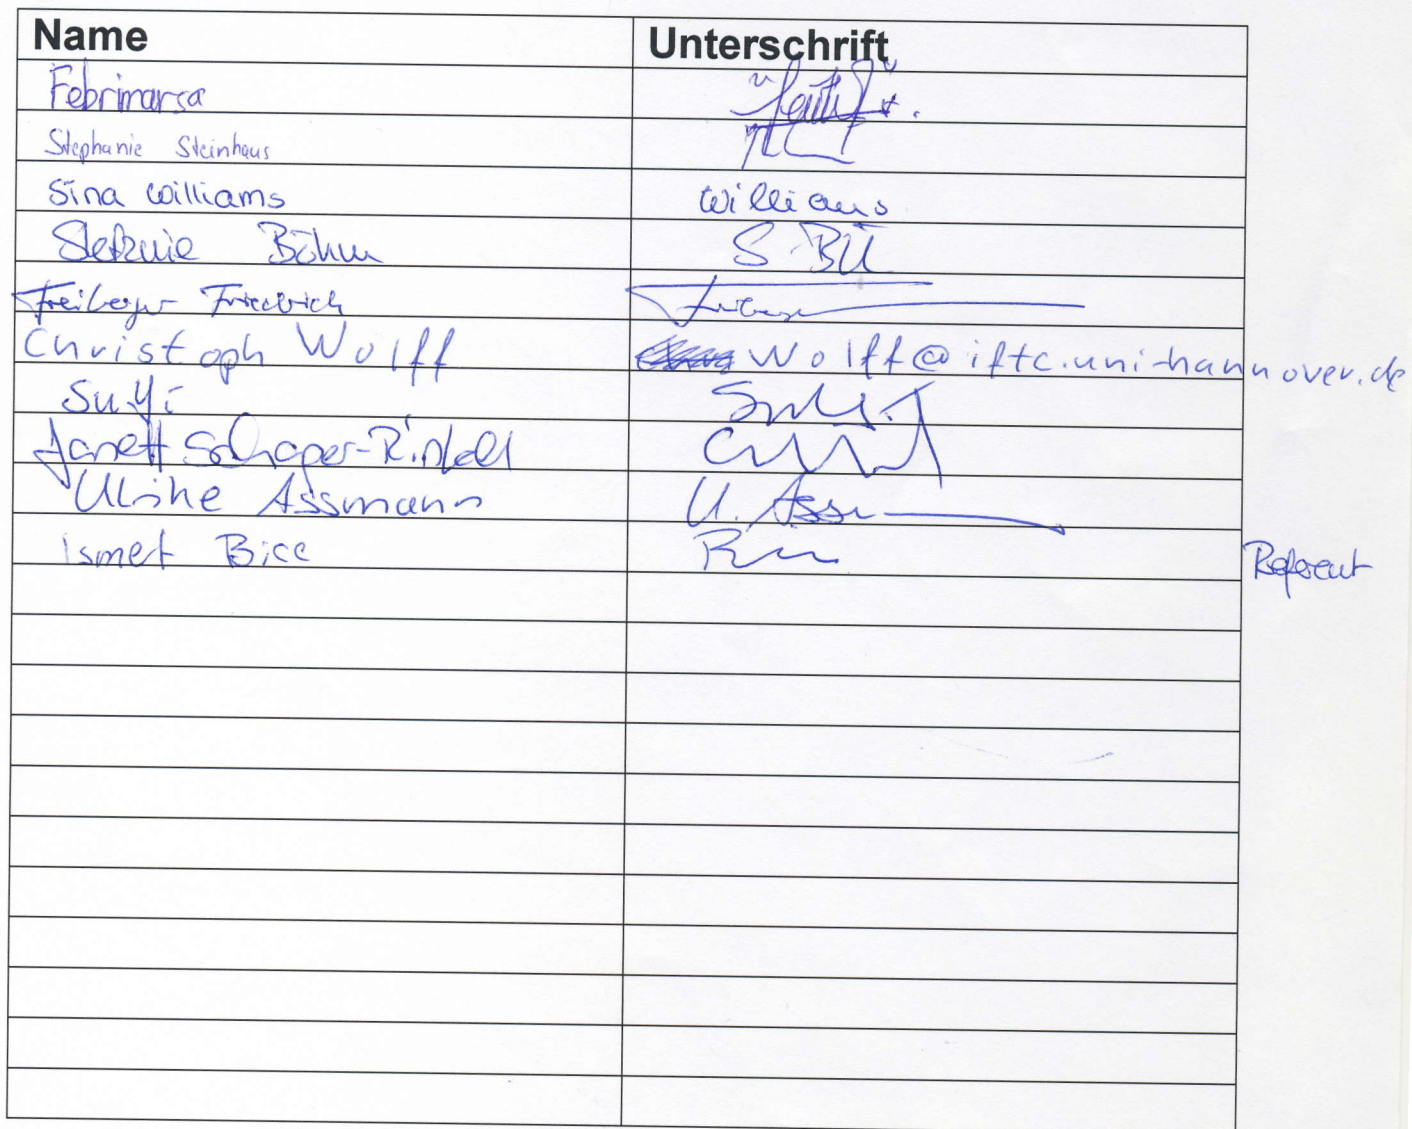 Name Unterschrift
Febrimarsa
Stephanie Steinhaus
Sina Williams Williams
Stefanie Böhm S BÜ
Freiberger Friedrich
Christoph Wolff Wolff@iftc.uni-hannover.de
Su Yi
Janett Schaper-
Ulrike Assmann U. Ass
Ismet Bice
Referent